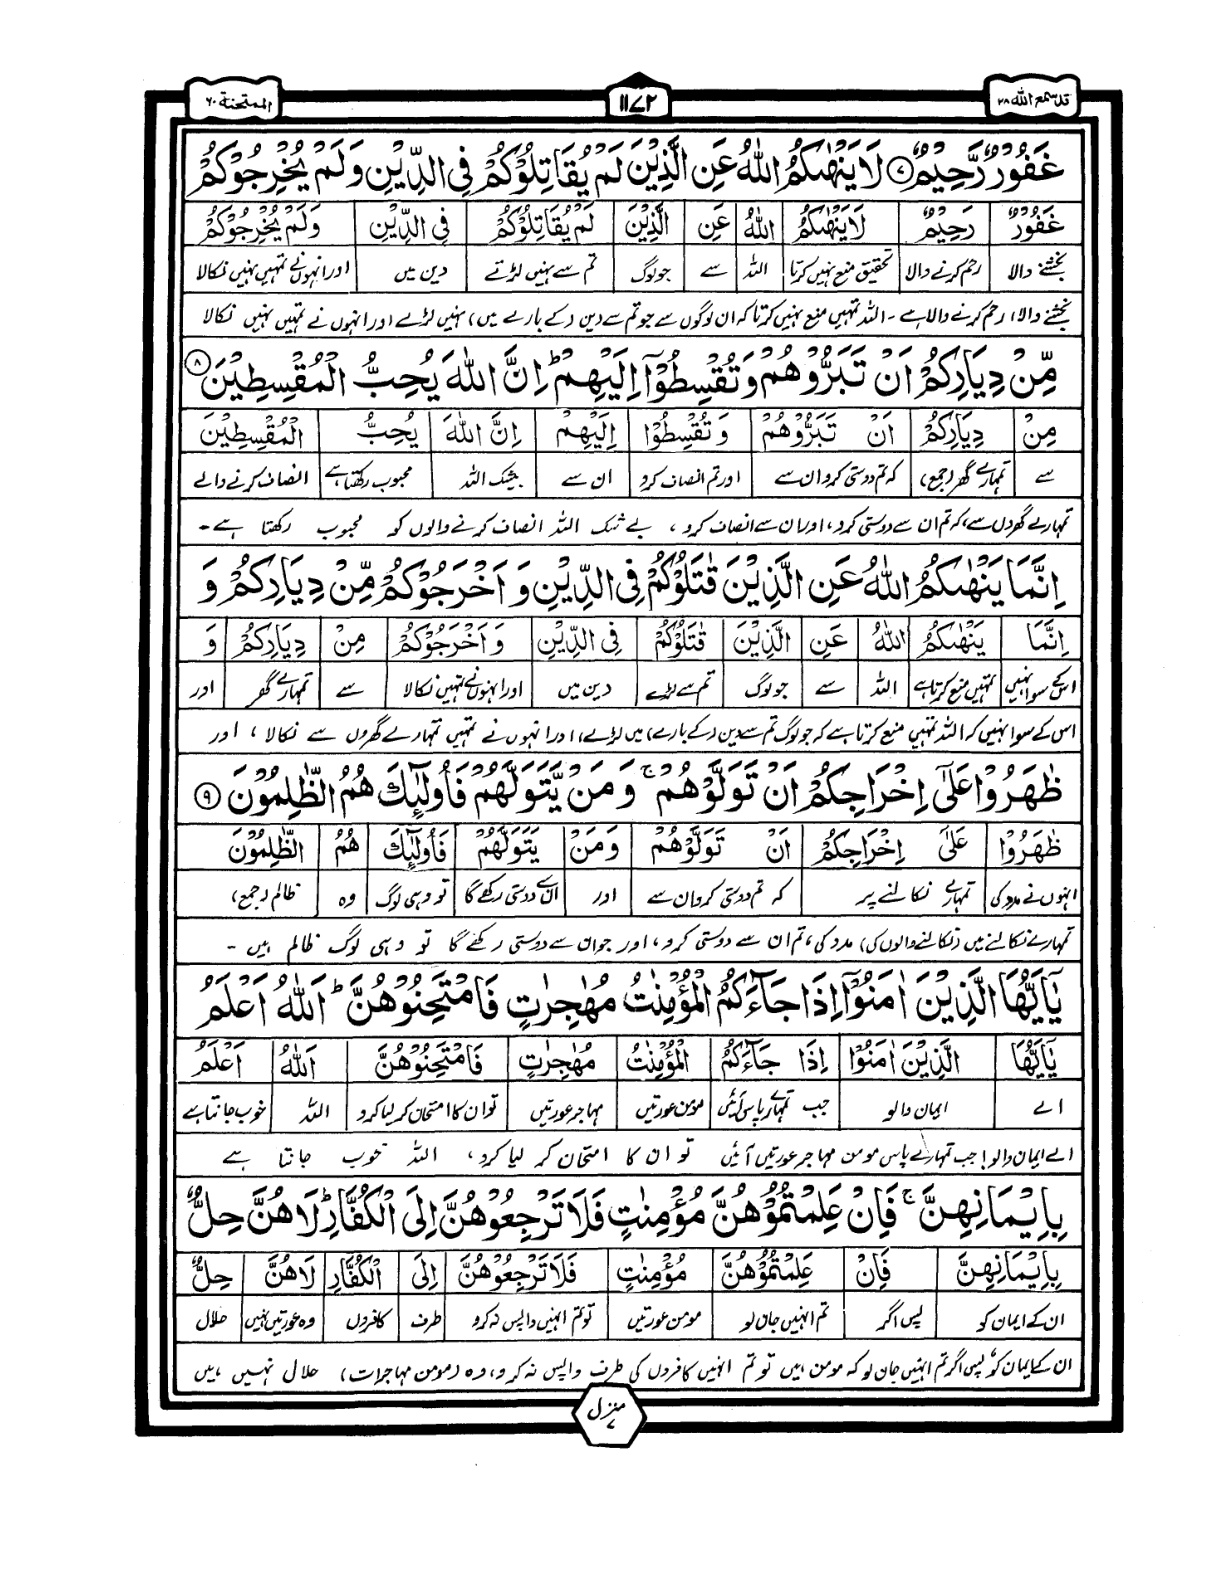 قد سمع الله ۲۸
۱۱۷۲
الممتحنة ۶۰
غَفُوْرٌ رَّحِيْمٌ ۷ لَا يَنْهٰىكُمُ اللّٰهُ عَنِ الَّذِيْنَ لَمْ يُقَاتِلُوْكُمْ فِى الدِّيْنِ وَلَمْ يُخْرِجُوْكُمْ
غَفُوْرٌ رَحِيْمٌ لَا يَنْهٰىكُمُ اللّٰهُ عَنِ الَّذِيْنَ لَمْ يُقَاتِلُوْكُمْ فِى الدِّيْنِ وَلَمْ يُخْرِجُوْكُمْ
بخشنے والا رحم کرنے والا تحقیق منع نہیں کرتا اللہ سے جو لوگ تم سے نہیں لڑتے دین میں اور انہوں نے تمہیں نہیں نکالا
بخشنے والا، رحم کرنے والا ہے۔ اللہ تمہیں منع نہیں کرتا کہ ان لوگوں سے جو تم سے دین (کے بارے میں) نہیں لڑے اور انہوں نے تمہیں نہیں نکالا
مِّنْ دِيَارِكُمْ اَنْ تَبَرُّوْهُمْ وَتُقْسِطُوْٓا اِلَيْهِمْ ؕ اِنَّ اللّٰهَ يُحِبُّ الْمُقْسِطِيْنَ ۸
مِنْ دِيَارِكُمْ اَنْ تَبَرُّوْهُمْ وَتُقْسِطُوْٓا اِلَيْهِمْ اِنَّ اللّٰهَ يُحِبُّ الْمُقْسِطِيْنَ
سے تمہارے گھر (جمع) کہ تم دوستی کرو ان سے اور تم انصاف کرو ان سے بیشک اللہ محبوب رکھتا ہے انصاف کرنے والے
تمہارے گھروں سے، کہ تم ان سے دوستی کرو، اور ان سے انصاف کرو، بے شک اللہ انصاف کرنے والوں کو محبوب رکھتا ہے۔
اِنَّمَا يَنْهٰىكُمُ اللّٰهُ عَنِ الَّذِيْنَ قٰتَلُوْكُمْ فِى الدِّيْنِ وَ اَخْرَجُوْكُمْ مِّنْ دِيَارِكُمْ وَ
اِنَّمَا يَنْهٰىكُمُ اللّٰهُ عَنِ الَّذِيْنَ قٰتَلُوْكُمْ فِى الدِّيْنِ وَ اَخْرَجُوْكُمْ مِنْ دِيَارِكُمْ وَ
اسکے سوا نہیں تمہیں منع کرتا ہے اللہ سے جو لوگ تم سے لڑے دین میں اور انہوں نے تمہیں نکالا سے تمہارے گھر اور
اس کے سوا نہیں کہ اللہ تمہیں منع کرتا ہے کہ جو لوگ تم سے دین (کے بارے) میں لڑے، اور انہوں نے تمہیں تمہارے گھروں سے نکالا، اور
ظٰهَرُوْا عَلٰٓى اِخْرَاجِكُمْ اَنْ تَوَلَّوْهُمْ ۚ وَ مَنْ يَّتَوَلَّهُمْ فَاُولٰٓئِكَ هُمُ الظّٰلِمُوْنَ ۹
ظٰهَرُوْا عَلٰٓى اِخْرَاجِكُمْ اَنْ تَوَلَّوْهُمْ وَمَنْ يَتَوَلَّهُمْ فَاُولٰٓئِكَ هُمُ الظّٰلِمُوْنَ
انہوں نے مدد کی تمہارے نکالنے پر کہ تم دوستی کرو ان سے اور ان سے دوستی رکھے گا تو وہی لوگ وہ ظالم (جمع)
تمہارے نکالنے میں (نکالنے والوں کی) مدد کی، تم ان سے دوستی کرو، اور جو ان سے دوستی رکھے گا تو وہی لوگ ظالم ہیں۔
يٰٓاَيُّهَا الَّذِيْنَ اٰمَنُوْٓا اِذَا جَآءَكُمُ الْمُؤْمِنٰتُ مُهٰجِرٰتٍ فَامْتَحِنُوْهُنَّ ؕ اَللّٰهُ اَعْلَمُ
يٰٓاَيُّهَا الَّذِيْنَ اٰمَنُوْٓا اِذَا جَآءَكُمُ الْمُؤْمِنٰتُ مُهٰجِرٰتٍ فَامْتَحِنُوْهُنَّ اَللّٰهُ اَعْلَمُ
اے ایمان والو جب تمہارے پاس آئیں مومن عورتیں مہاجر عورتیں تو ان کا امتحان کر لیا کرو اللہ خوب جانتا ہے
اے ایمان والو! جب تمہارے پاس مومن مہاجر عورتیں آئیں تو ان کا امتحان کر لیا کرو، اللہ خوب جانتا ہے
بِاِيْمَانِهِنَّ ۚ فَاِنْ عَلِمْتُمُوْهُنَّ مُؤْمِنٰتٍ فَلَا تَرْجِعُوْهُنَّ اِلَى الْكُفَّارِ ؕ لَا هُنَّ حِلٌّ
بِاِيْمَانِهِنَّ فَاِنْ عَلِمْتُمُوْهُنَّ مُؤْمِنٰتٍ فَلَا تَرْجِعُوْهُنَّ اِلَى الْكُفَّارِ لَا هُنَّ حِلٌّ
ان کے ایمان کو پس اگر تم انہیں جان لو مومن عورتیں تو تم انہیں واپس نہ کرو طرف کافروں وہ عورتیں نہیں حلال
ان کے ایمان کو، پس اگر تم انہیں جان لو کہ مومن ہیں تو تم انہیں کافروں کی طرف واپس نہ کرو، وہ (مومن مہاجرات) حلال نہیں ہیں
منزل ۷